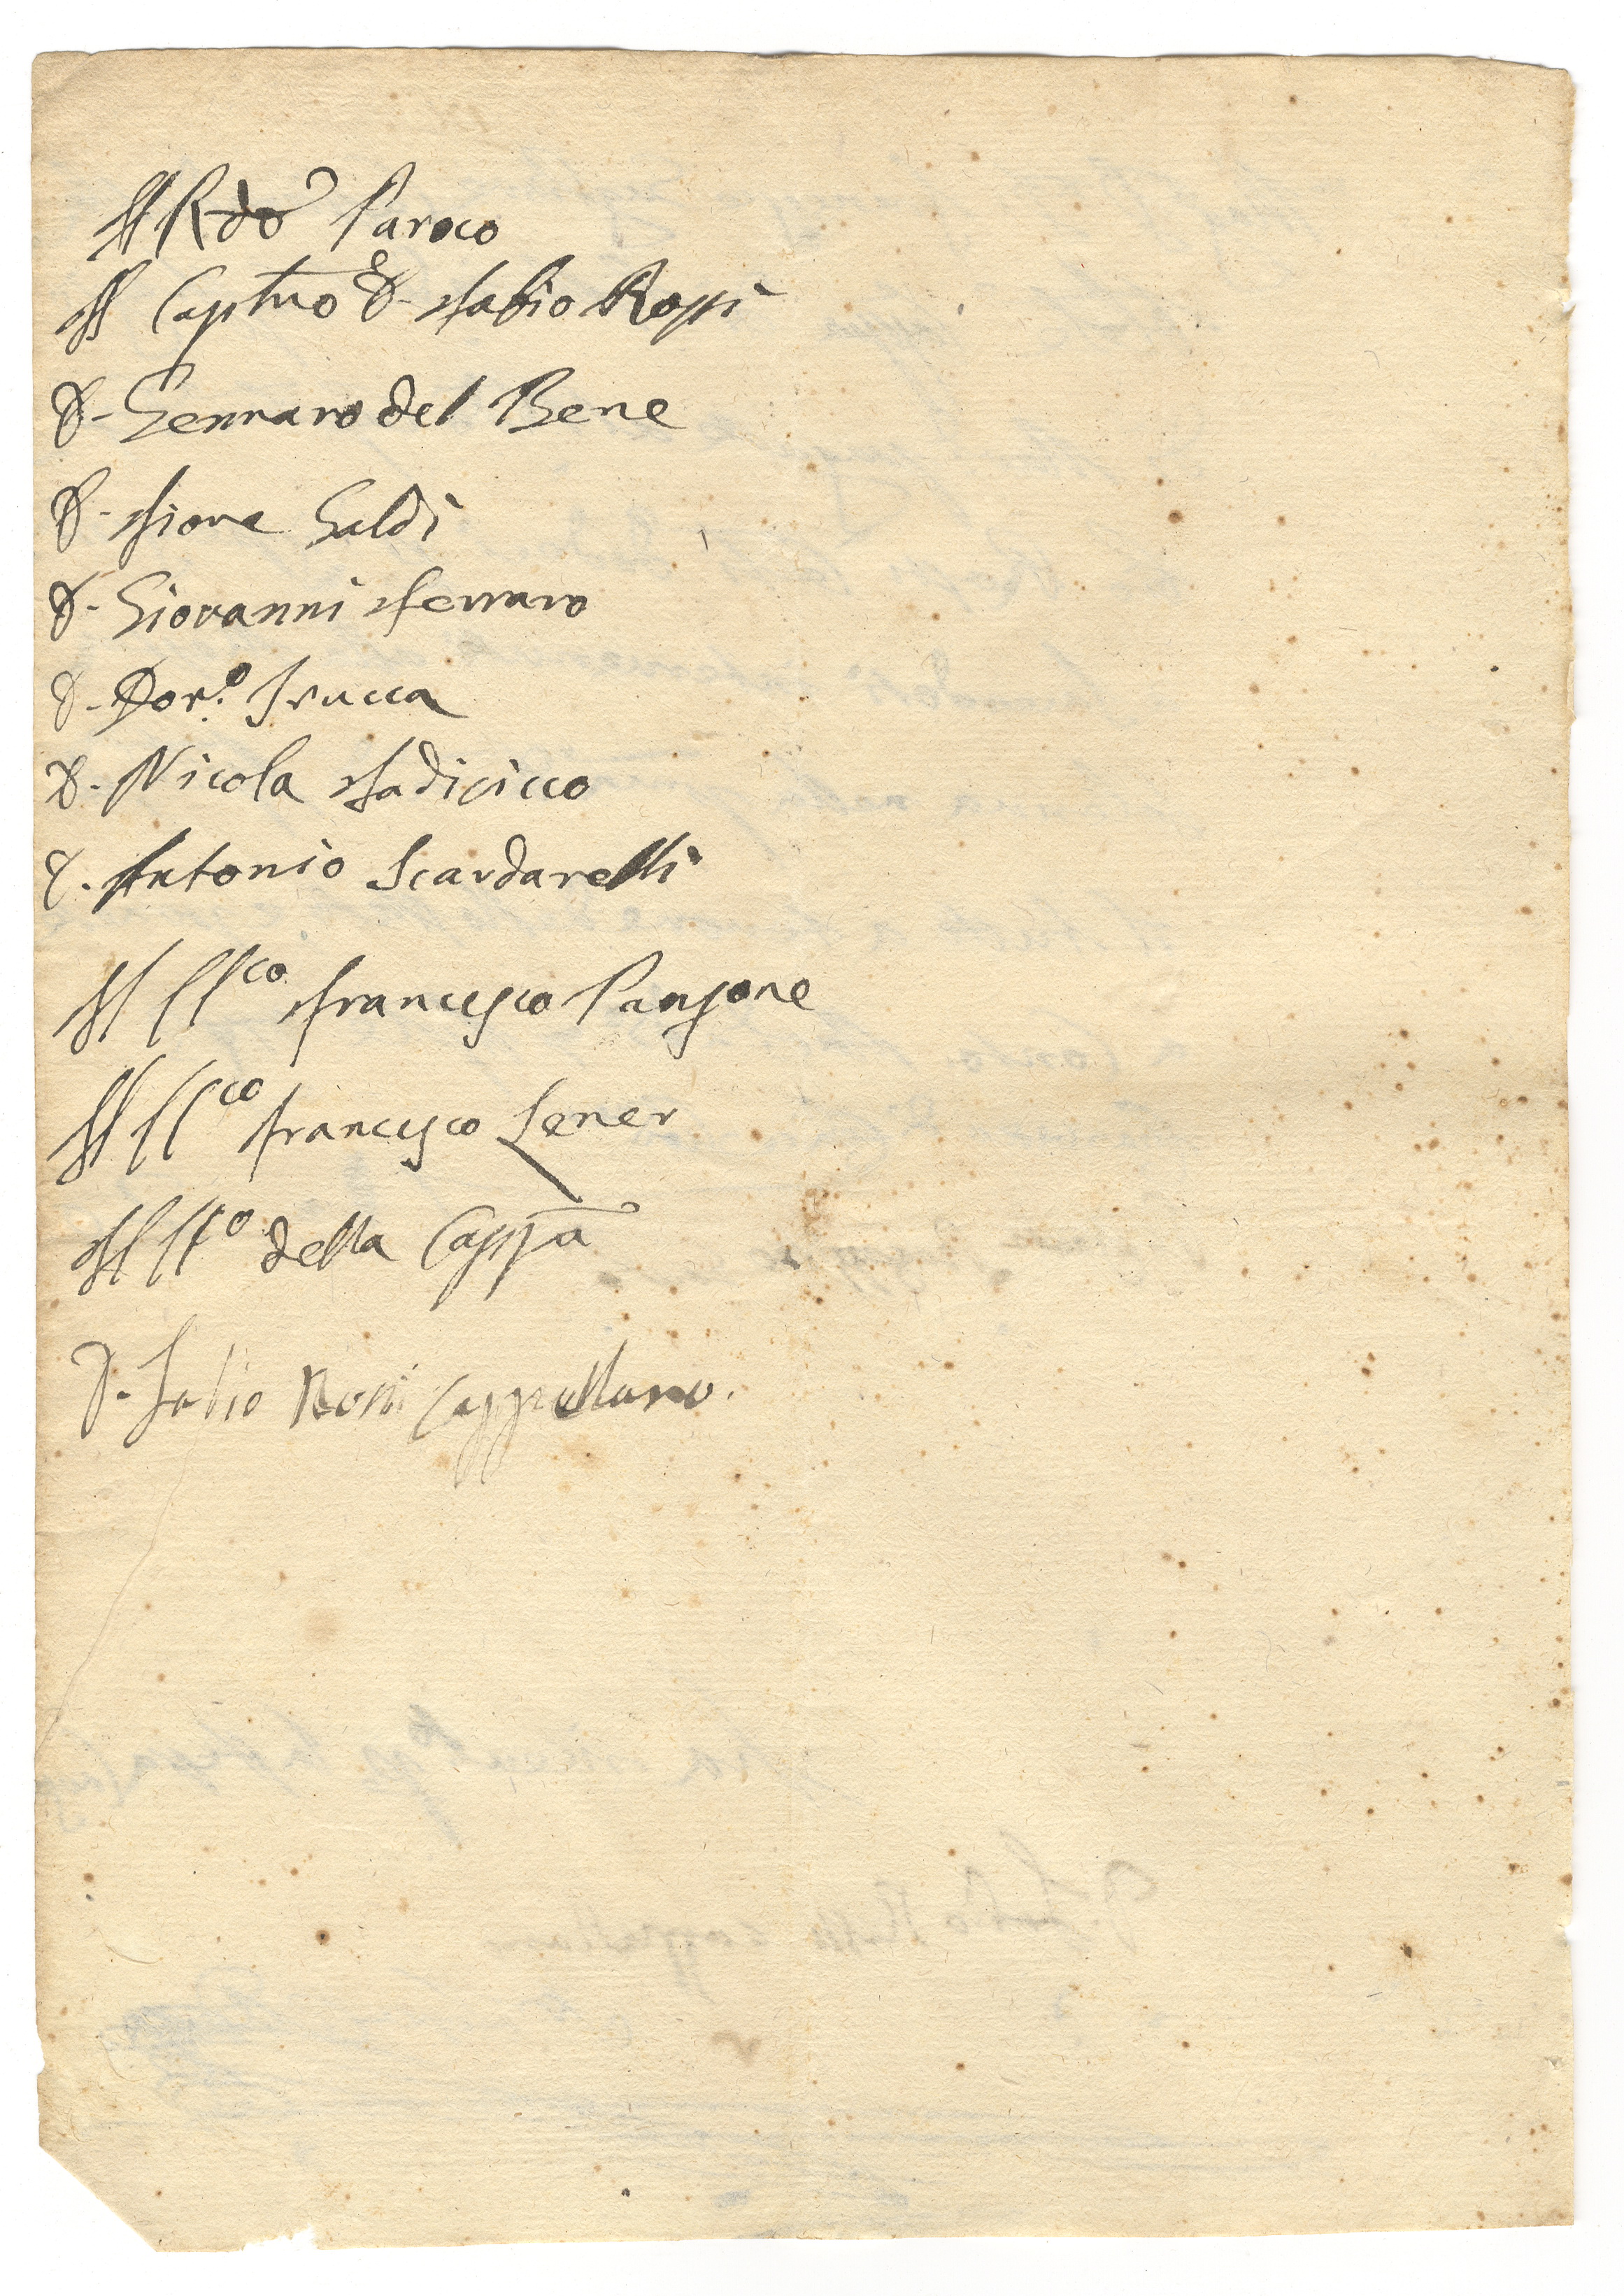 Il Rdo Paroco
Il Capllno D. Fabio Rossi
D. Gennaro del Bene
D. Fiore Galdi
D. Giovanni Ferraro
D. Dor.o Trucca
D. Nicola Fadicicco
D. Antonio Scardarelli
Il Clco Francesco Panzone
Il Clco Francesco Lener
Il della Cappa
D. Fabio Rossi Cappellano.